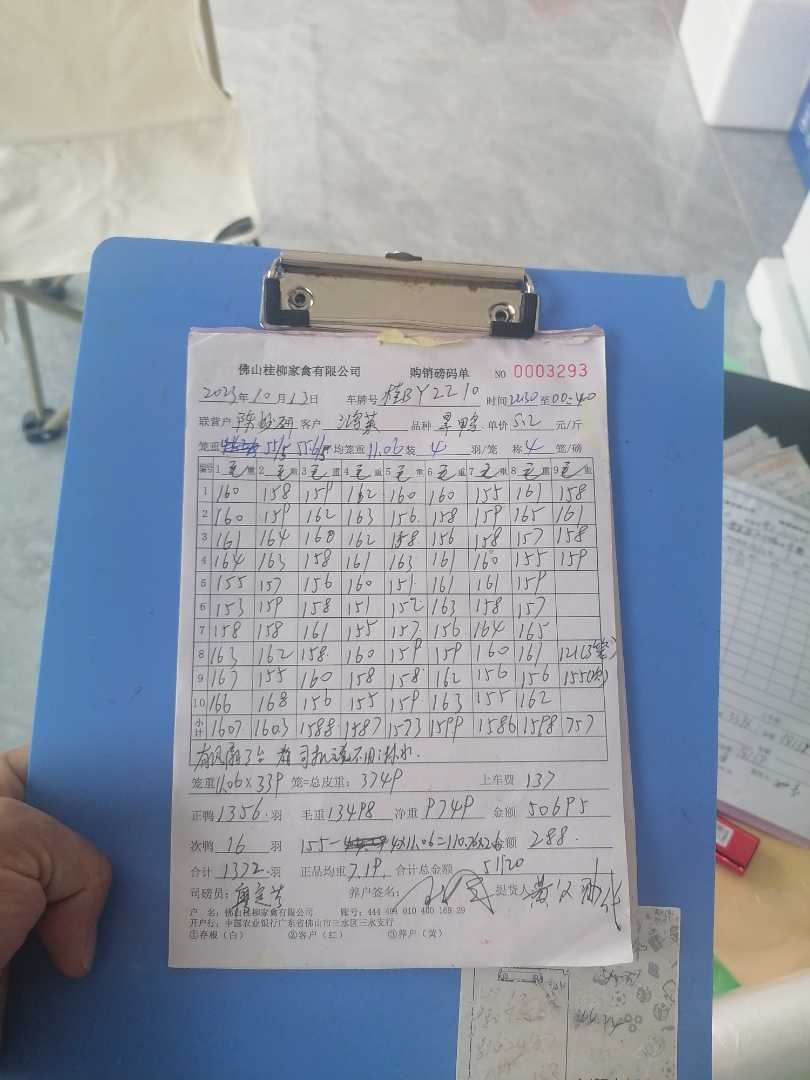 佛山桂柳家禽有限公司 购销磅码单 NO 0003293
2023年10月13日 车牌号 桂BY2210 时间22:30至00:40
联营户 客户 鸿英 品种 旱鸭 单价 5.2 元/斤
笼重 均笼重11.06装 4 羽/笼 称 4 笼/磅
编号 1 毛重 2 毛重 3 毛重 4 毛重 5 毛重 6 毛重 7 毛重 8 毛重 9 毛重
1 160 158 159 162 160 160 155 161 158
2 160 159 162 163 156 158 159 165 161
3 161 164 160 162 158 156 158 157 158
4 164 163 158 161 163 161 160 155 159
5 155 157 156 160 151 161 161 159
6 153 159 158 151 152 163 158 157
7 158 158 161 155 157 156 164 165
8 163 162 158 160 159 159 160 161 121(3笼)
9 167 155 160 158 158 162 156 156 155(次)
10 166 168 156 155 159 163 155 162
小计 1607 1603 1588 1587 1573 1599 1586 1598 757
有风扇3台 司机说不用淋水.
笼重11.06×339 笼=总皮重: 3749 上车费 137
正鸭 1356 羽 毛重 13498 净重 9749 金额 50695
次鸭 16 羽 155- 4×11.06=110.76×2.6 金额 288.
合计 1372 羽 正品均重 7.19 合计总金额 51120
司磅员: 养户签名: 提货人:
户 名: 佛山桂柳家禽有限公司 账号: 444 404 010 400 169 29
开户行: 中国农业银行广东省佛山市三水区三水支行
①存根（白） ②客户（红） ③养户（黄）